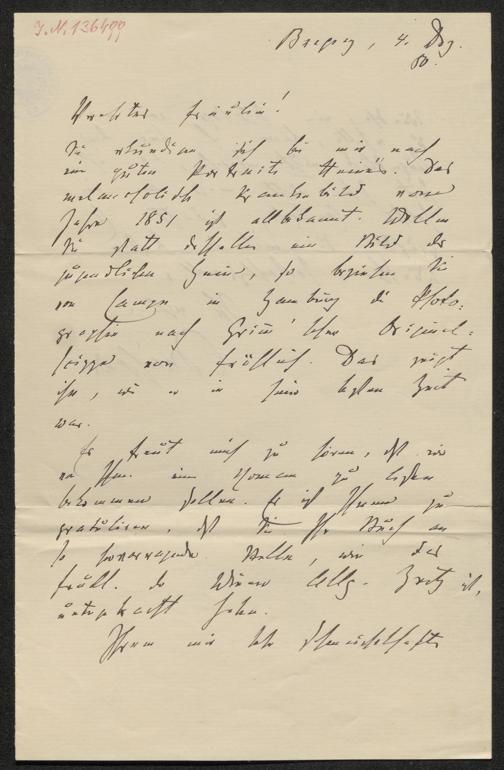 I.N. 136499
Bregenz, 4. Dez.
80.
Verehrtes Fräulein!
Sie erkundigen sich bei mir nach
ein guten Portraits Heine's. Das
melancholische Krankenbild vom
Jahre 1851 ist allbekannt. Wollen
Sie statt desselben ein Bild des
jugendlichen Heine, so beziehen Sie
von Campe in Hamburg die Photo-
graphie nach Grimm'scher Original-
skizze von fröhlich. Das zeigt
ihn, wie er in seiner besten Zeit
war.
Es freut mich zu hören, daß wir
von Ihnen einen Roman zu lesen
bekommen sollen. Es ist Ihnen zu
gratuliren, daß Sie Ihr Buch an
so hervorragender Stelle, wie das
Feuill. der Wiener Allg. Zeitg ist,
untergebracht haben.
Ihrem mir sehr